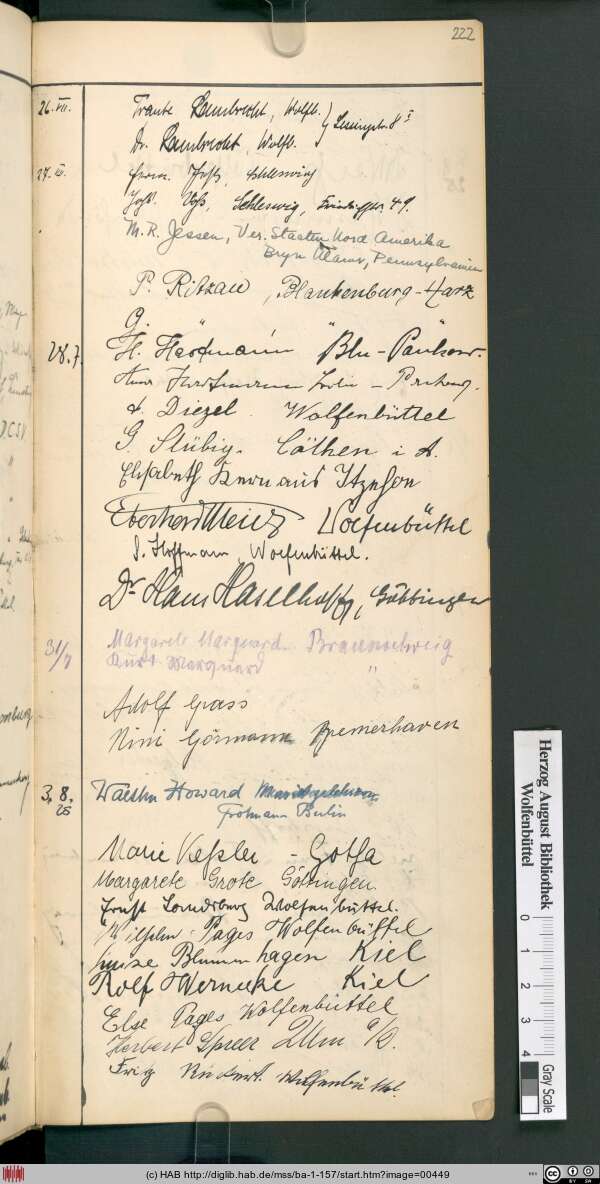 222
26. VII. Traute Lambrecht, Wolfb.
Dr. Lambrecht, Wolfb.
27. Schleswig
Voß, Schleswig, 49.
M. R. Jessen, Ver. Staaten Nord Amerika
Bryn Mawr, Pennsylvanien
P. Ritzau, Blankenburg-Harz
G.
28.7. H. Hartmann Bln-Pankow.
Hartmann Berlin - Pankow.
Diezel. Wolfenbüttel
G. Stübig. Cöthen i A.
Elisabeth aus Itzehoe
Eberhard Wolfenbüttel
Hoffmann, Wolfenbüttel.
Dr Hans Haselhoff, Göttingen
31/7 Margarete Marquard. Braunschweig
Kurt Marquard "
Adolf Grass
Nini Görmann Bremerhaven
3. 8. 25 Walther Howard
Frohnau Berlin
Marie Keßler - Gotha
Margarete Grote Göttingen
Ernst Landsberg Wolfenbüttel.
Wilhelm Pages Wolfenbüttel
Luise Blumenhagen Kiel
Rolf Wernecke Kiel
Else Pages Wolfenbüttel
Herbert Speer Ulm a/D.
Fritz Wolfenbüttel.
Herzog August Bibliothek
Wolfenbüttel
0 1 2 3 4
Gray Scale
(c) HAB http://diglib.hab.de/mss/ba-1-157/start.htm?image=00449
CC BY SA